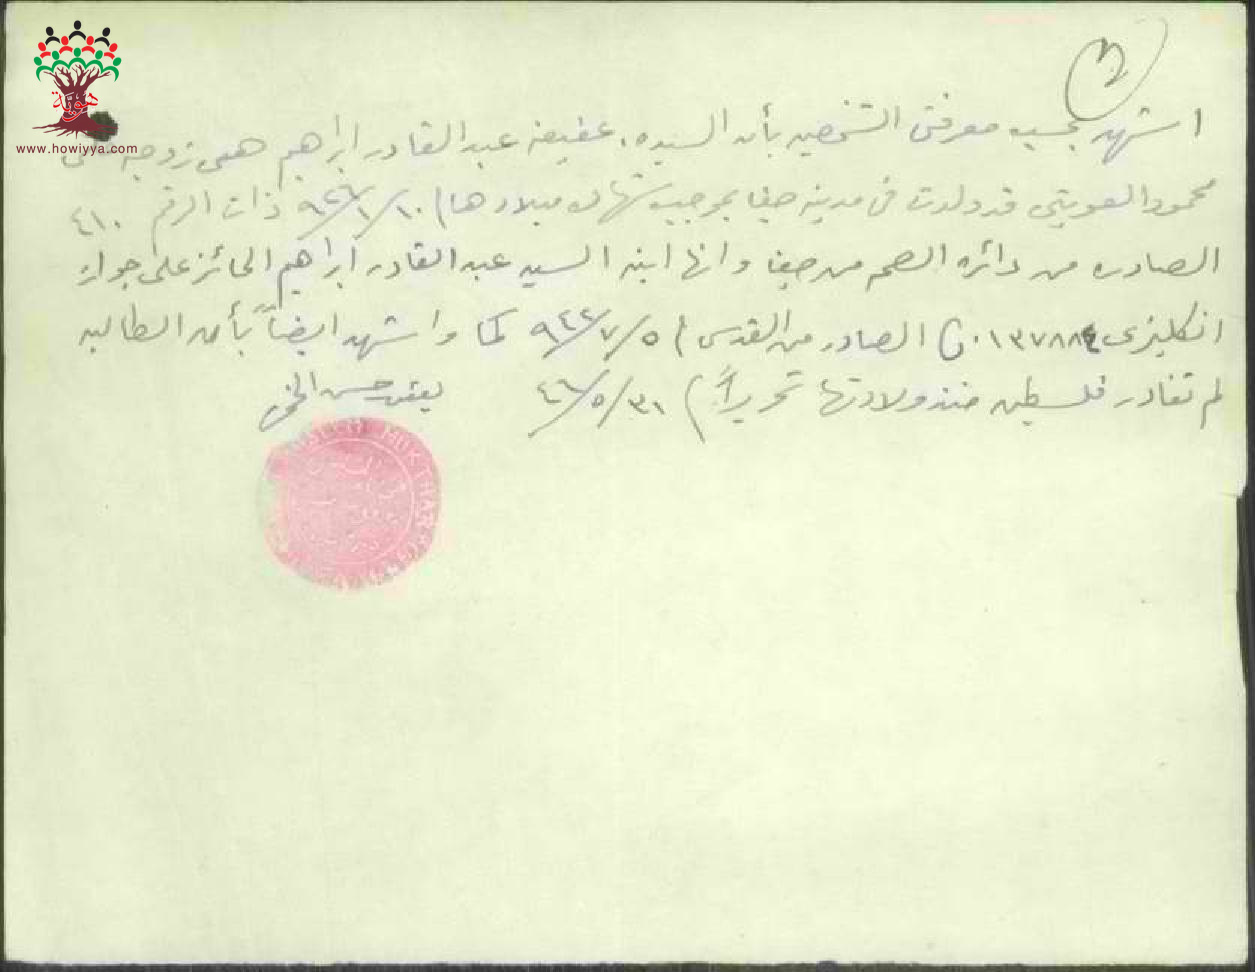 هوية
www.howiyya.com
اشهد بحسب معرفتي الشخصيه بأن السيده عفيفه عبد القادر ابراهيم زوجه
محمود العويتي قد ولدت في مدينه حيفا بموجب شهادة ميلادها ١٠/١/ ذات الرقم ٤١٠
الصادره من دائره الصحه حيفا وانها ابنة السيد عبد القادر ابراهيم الحائز على جواز
انكليزي ٠١٣٧٨٨٤ الصادر من القدس ٥/٧/٩٤٢ كما واشهد ايضاً بأن الطالبه
لم تغادر فلسطين منذ ولادتها تحريراً ٣١/٥/٤٦
MUKTHAR